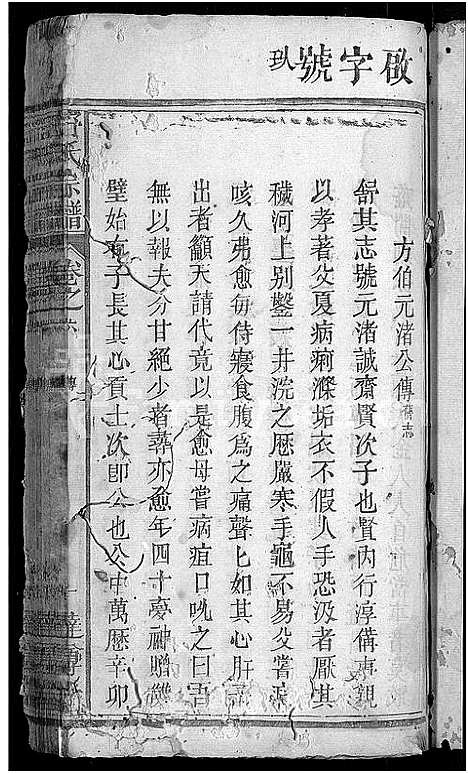 啟字號 玖
方伯元渚公傳 舊志
舒其志號元渚誠齋賢次子也賢內行淳備事親
以孝著父夏病痢滌垢衣不假人手恐汲者厭其
穢河上別鑿一井浣之厯嚴寒手龜不易父嘗
咳久弗愈每侍寢食腹為之痛聲匕如其心肝
出者籲天請代竟以是愈母嘗病疽口吮之曰吾
無以報夫分甘絕少者尋亦愈年四十夢神贈
壁始 子長其心貢士次即公也公中萬厯辛卯
氏宗譜 卷之六 傳